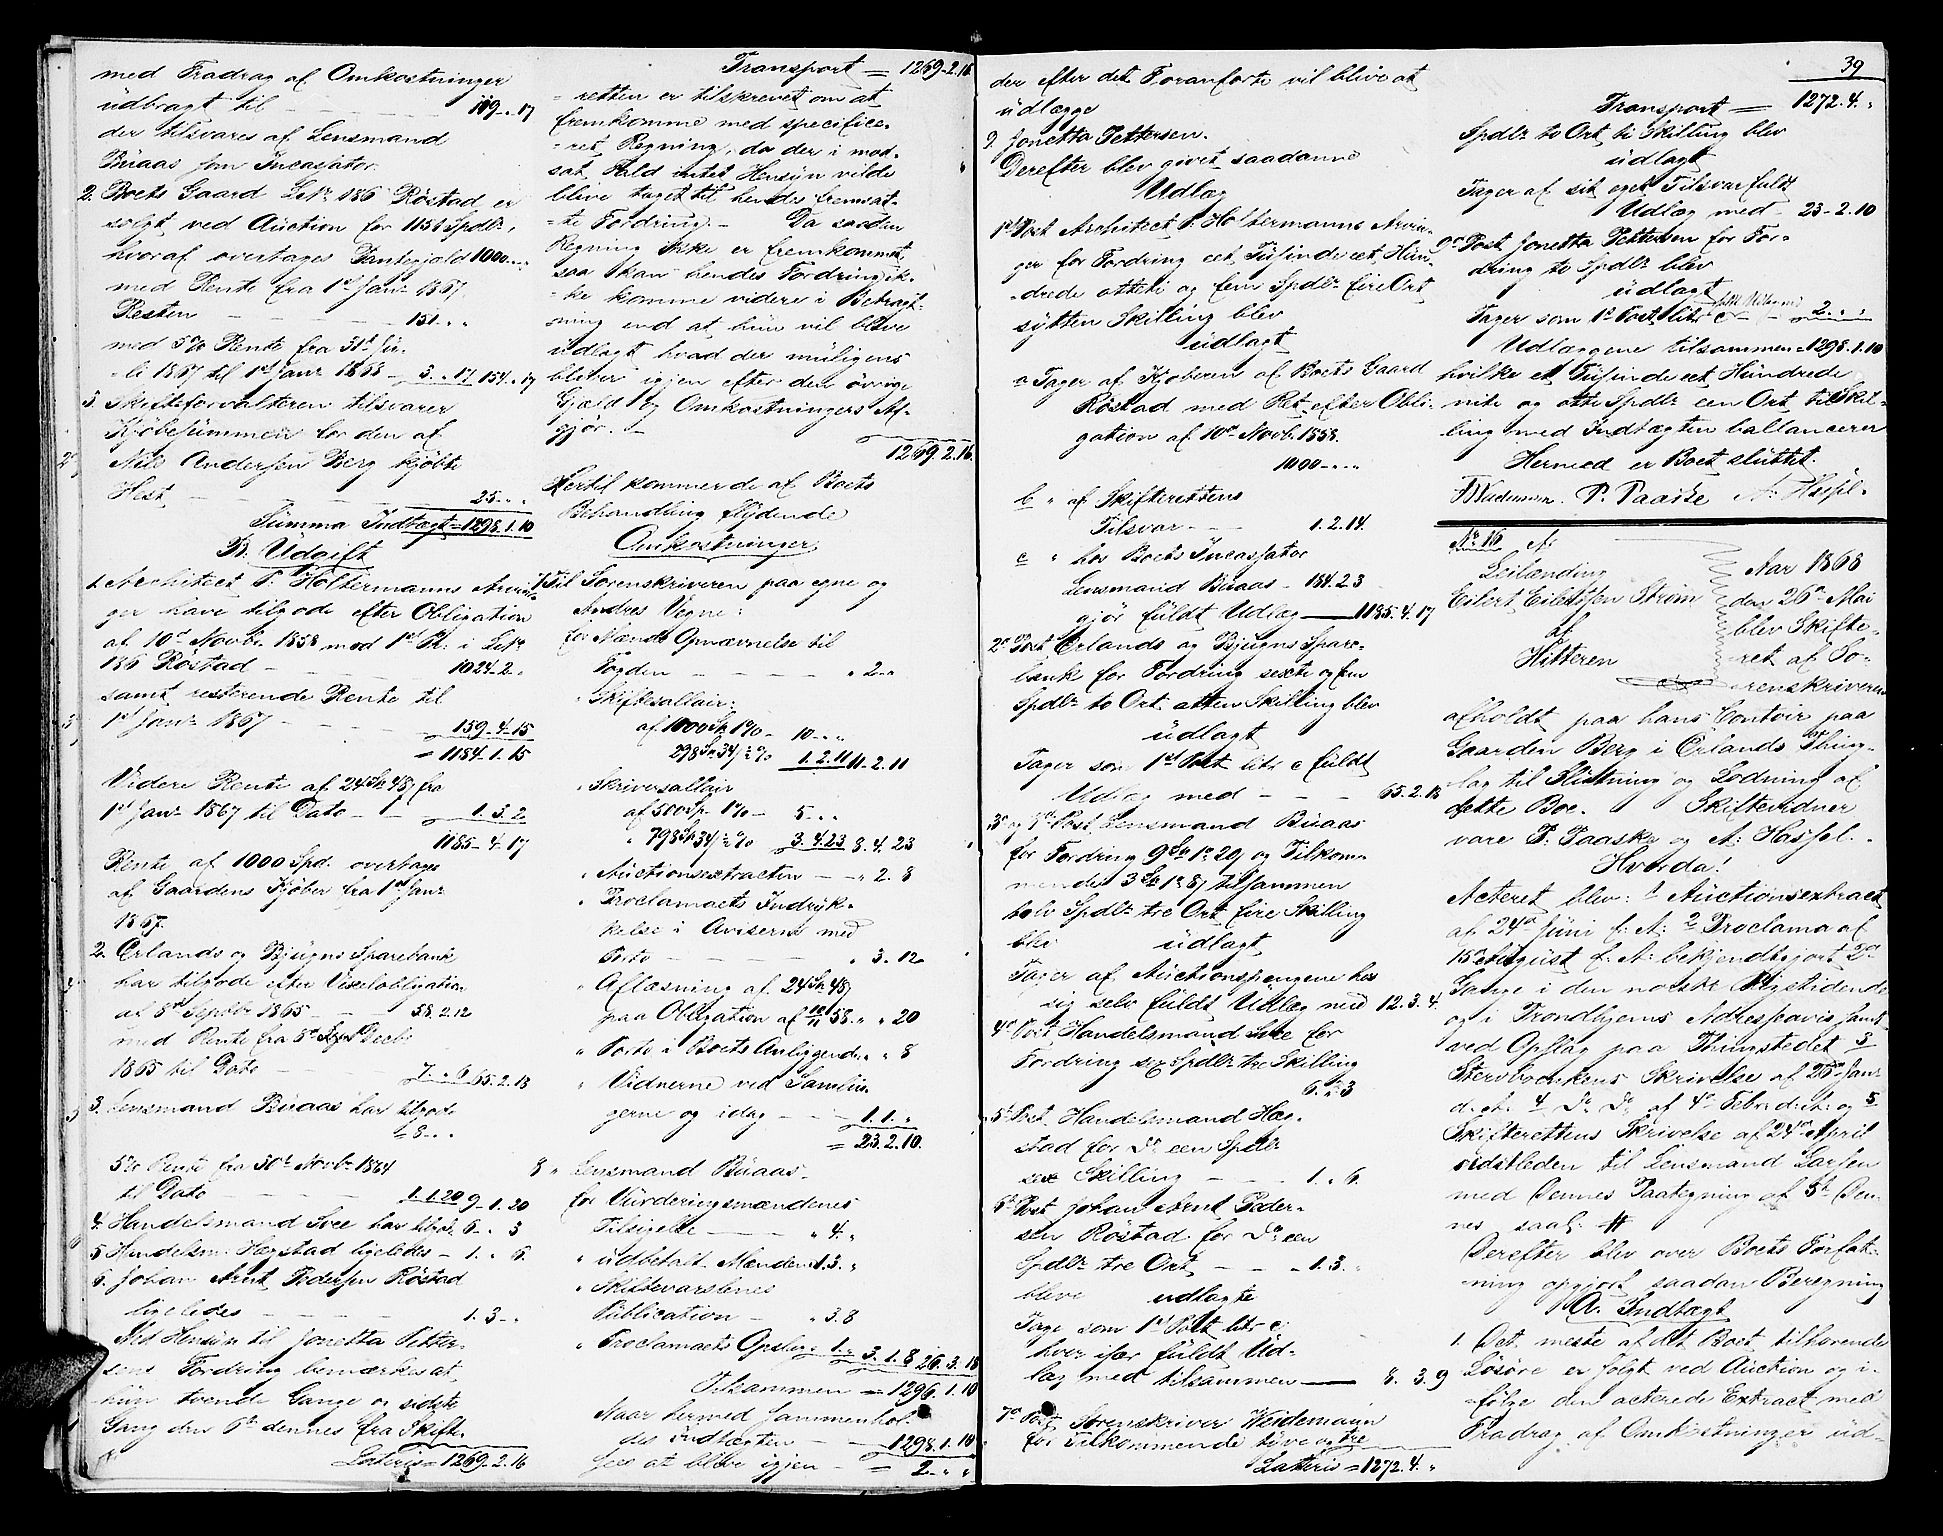 med Fradrag af Omkostninger
udbragt til - - - 119 " 17
der tilsvares af Lensmand
Buaas som Incassator.
2. Boets Gaard Lbnr 186 Röstad er
solgt ved Auction for 1151 Spdlr,
hvoraf overtages Pantegjæld 1000 " "
med Rente fra 1st Janr 1867.
Resten - - - 151 " "
med 5% Rente fra 31st Ju-
li 1867 til 1st Janr 1868 - 3. " 17 154. " 17
3. Skifteforvalteren tilsvarer
Kjöbesummen for den af
Nils Andersen Berg kjöbte
Hest - - - 25 " "
Summa Indtægt = 1298. 1. 10
B. Udgift
1. Architect P. Holtermanns Arvin-
ger have tilgode efter Obligation
af 10de Novbr 1858 med 1st Pr. i Lbnr
186 Röstad - - 1024. 2. "
samt resterende Rente til
1st Janr 1867 - - 159. 4. 15
= 1184. 1. 15
Videre Rente af 24 Sp 48 fra
1st Janr 1867 til Dato - - 1. 3. 2
1185. 4. 17
Rente af 1000 Spd. overtages
af Gaardens Kjøber fra 1st Janr
1867.
2. Örlands og Bjugns Sparebank
har tilgode efter Vexelobligation
af 8de Septbr 1865 - 58. 2. 12
med Rente fra 8de Decbr
1865 til Dato - 7. " 6 65. 2. 18
3. Lensmand Buaas har tilgode
8 " "
5% Rente fra 30te Novbr 1864
til Dato - - - 1. 1. 20 9. 1. 20
4. Handelsmand Svee har tilgode 6. " 3
5 Handelsm. Hægstad ligeledes - 1. " 6.
6. Johan Arnt Pedersen Röstad
ligeledes - - - 1. 3. "
Med Hensyn til Jonetta Petter-
sens Fordring bemærkes at
hun tvende Gange og sidste
Gang den 6te dennes fra Skift-
Lateris = 1269. 2. 16
Transport = 1269. 2. 16
retten er tilskrevet om at
fremkomme med specifice-
ret Regning, da der i mod-
sat Fald intet Hensyn vilde
blive taget til hendes fremsat-
te Fordring. - Da saadan
Regning ikke er fremkommet
saa kan hendes Fordring ik-
ke komme videre i Betragt-
ning end at hun vil blive
udlagt hvad der muligens
bliver igjen efter den övrige
Gjæld og Omkostningers Af-
gjør. -
1269. 2. 16
Hertil kommer de af Boets
Behandling flydende
Omkostninger
7. Til Sorenskriveren paa egne og
Andres Vegne:
for Mænds Opnævnelse til
Fogden - - - " 2 "
" Skiftesallair:
af 1000 Sp 1% - 10 " "
298 Sp 34 ½% 1. 2. 11 11. 2. 11
" Skriversallair
af 500 Sp 1% - 5 " "
" 798 Sp 34 ½% 3. 4. 23 8. 4. 23
" Auctionsextracten - " 2. 8
" Proclamaets Indryk-
kelse i Aviserne med
Porto - - - " 3. 12
" Aflæsning af 24 Sp 48
paa Obligation af 10/11 58. " " 20
" Porto i Boets Anliggende " " 8
" Vidnerne ved Samlin-
gerne og idag - - 1. 1. "
= 23. 2. 10.
8 " Lensmand Buaas
for Vurderingsmændenes
Tilsigelse - - " 4. "
" udbetalt Mændene 1. 3. "
" Skiftevarslenes
Publication - " 3. 8
" Proclamaets Opslag 1. " " 3. 1. 8 26. 3. 18
Tilsammen = 1296. 1. 10
Naar hermed sammenhol-
des Indtægten - - 1298. 1. 10
sees at blive igjen - = 2. " "
39
der efter det Foranførte vil blive at
udlægge
9. Jonetta Pettersen.
Derefter blev givet saadanne
Udlæg
1st Post Architect P. Holtermanns Arvin-
ger for Fordring eet Tusinde eet Hun-
drede otteti og fem Spdlr fire Ort
sytten Skilling blev
udlagt
a Tager af Kjøberen af Boets Gaard
Röstad med Ret efter Obli-
gation af 10de Novbr 1858.
1000 " "
b " af Skifterettens
Tilsvar - - 1. 2. 14.
c " hos Boets Incassator
Lensmand Buaas - 184. 2. 3
gjør fuldt Udlæg - 1185. 4. 17
2de Post Örlands og Bjugns Spare-
bank for Fordring sexti og fem
Spdlr to Ort atten Skilling blev
udlagt
Tager som 1st Post litr c fuldt
Udlæg med - - - 65. 2. 18
3de og 8de Post Lensmand Buaas
for Fordring 9 Sp 1 " 20 og Tilkom-
mende 3 Sp 1 " 8 tilsammen
tolv Spdlr tre Ort fire Skilling
blev udlagt
Tager af Auctionspengene hos
sig selv fuldt Udlæg med 12. 3. 4.
4de Post Handelsmand Svee for
Fordring sex Spdlr tre Skilling
6. " 3
5te Post Handelsmand Hæg-
stad for Do een Spdlr
sex Skilling - - 1. " 6.
6te Post Johan Arnt Peder-
sen Röstad for Do een
Spdlr tre Ort - - 1. 3. "
bleve udlagte
Tage som 1st Post litr c.
hver især fuldt Ud-
læg med tilsammen - 8. 3. 9
7de Post Sorenskriver Weidemann
for Tilkommende tyve og tre
Lateris = 1272. 4. "
Transport = 1272. 4. "
Spdlr to Ort ti Skilling blev
udlagt
Tager af sit eget Tilsvar fuldt
Udlæg med - 23. 2. 10
9de Post Jonetta Pettersen for For-
dring to Spdlr blev
udlagt
Tager som 1st Post litr c - - 2. " "
Udlæggene tilsammen = 1298. 1. 10
hvilke et Tusinde eet Hundrede
niti og otte Spdlr een Ort ti Skil-
ling med Indtægten ballancerer
Hermed er Boet sluttet.
Weidemann. P. Paaske A. Hassel.
No 16 A:
Leilænding
Eilert Eilertsen Strøm
af
Hitteren
Aar 1868
den 26de Mai
blev Skifte-
ret af So-
renskriveren
afholdt paa hans Contoir paa
Gaarden Berg i Örlands Thing-
lag til Slutning og Lodning af
dette Boe. Skiftevidner
vare P. Paaske og A. Hassel.
Hvorda!
Acteret blev: 1 Auctionsextract
af 24de Juni f: A: 2 Proclama af
15de August f: A: bekjendtgjort 2de
Gange i den norske Rigstidende
og i Trondhjems Adresseavis samt
ved Opslag paa Thingstedet 3
Stervboenkens Skrivelse af 28de Janr
d: A: 4 Do Do af 4de Febr. d: A: og 5
Skifterettens Skrivelse af 24de April
sidstleden til Lensmand Larsen
med Dennes Paategning af 5te Den-
nes saal: #
Derefter blev over Boets Forfat-
ning opgjort saadan Beregning
A. Indtægt
1. Det meste af det Boet tilhørende
Løsøre er solgt ved Auction og i-
følge den acterede Extract med
Fradrag af Omkostninger ud-